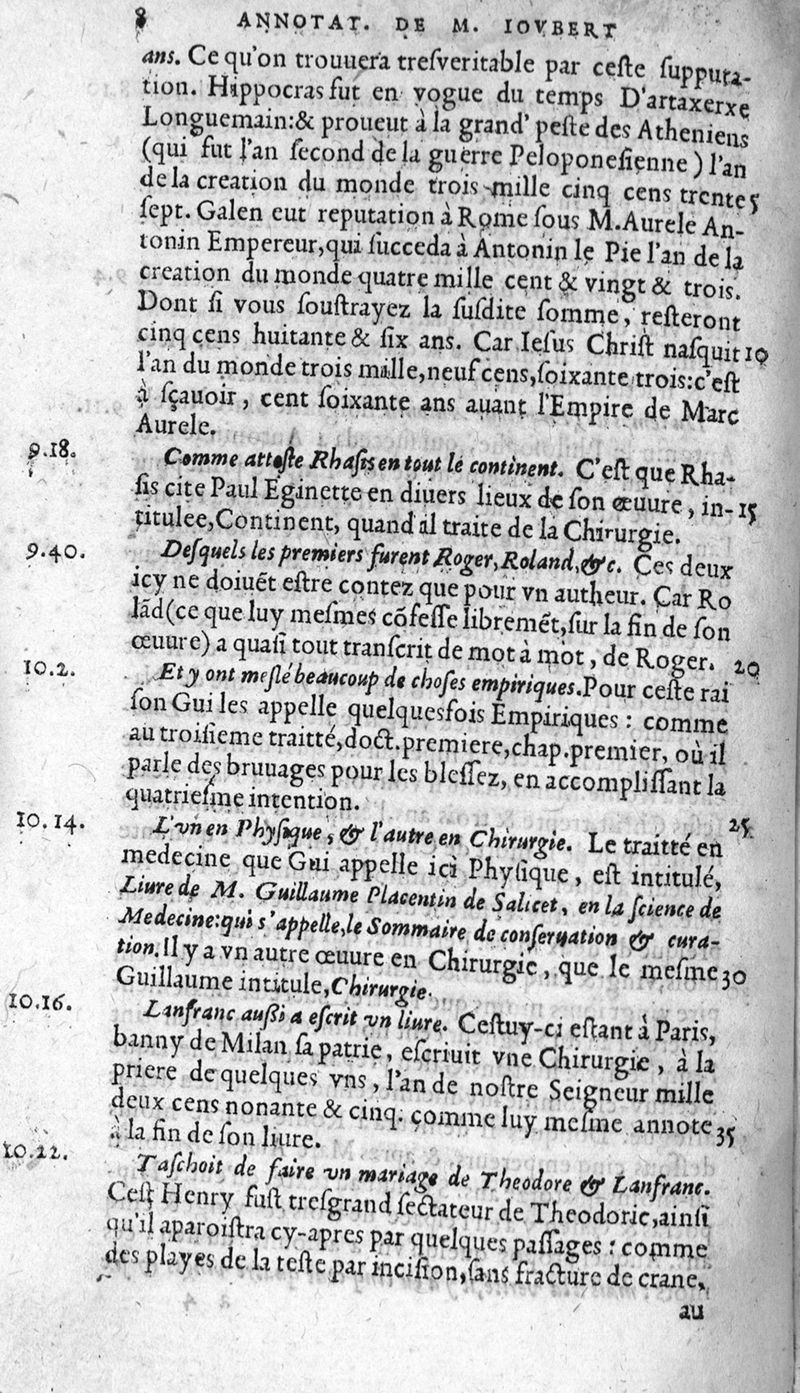 8 ANNOTAT. DE M. IOVBERT
ans. Ce qu'on trouuera treſveritable par ceſte ſupputa-
tion. Hippocras fut en vogue du temps D'artaxerxe
Longuemain:& proueut à la grand' peſte des Atheniens
(qui fut l'an ſecond de la guerre Peloponeſienne) l'an
de la creation du monde trois mille cinq cens trente 5
ſept. Galen eut reputation à Rome ſous M. Aurele An-
tonin Empereur, qui ſucceda à Antonin le Pie l'an de la
creation du monde quatre mille cent & vingt & trois.
Dont ſi vous ſouſtrayez la ſuſdite ſomme, reſteront
cinq cens huitante & ſix ans. Car Ieſus Chriſt naſquit 10
l'an du monde trois mille, neuf cens, ſoixante trois: c'eſt
à ſçauoir, cent ſoixante ans auant l'Empire de Marc
Aurele.
9.18. Comme atteſte Rhaſis en tout le continent. C'eſt que Rha-
ſis cite Paul Eginette en diuers lieux de ſon œuure, in- 15
titulee, Continent, quand il traite de la Chirurgie.
9.40. Deſquels les premiers furent Roger, Roland, &c. Ces deux
icy ne doiuẽt eſtre contez que pour vn autheur. Car Ro
lãd (ce que luy meſmes cõfeſſe libremẽt, ſur la fin de ſon
œuure) a quaſi tout tranſcrit de mot à mot, de Roger. 20
10.2. Et y ont meſlé beaucoup de choſes empiriques. Pour ceſte rai
ſon Gui les appelle quelquesfois Empiriques: comme
au troiſieme traitté, doct. premiere, chap. premier, où il
parle des bruuages pour les bleſſez, en accompliſſant la
quatrieſme intention.
10.14. L'vn en Phyſique, & l'autre en Chirurgie. Le traitté en 25
medecine que Gui appelle ici Phyſique, eſt intitulé,
Liure de M. Guillaume Placentin de Salicet, en la ſcience de
Medecine: qui s'appelle, le Sommaire de conſeruation & cura-
tion. Il y a vn autre œuure en Chirurgie, que le meſme 30
Guillaume intitule, Chirurgie.
10.16. Lanfranc auſſi a eſcrit vn liure. Ceſtuy-ci eſtant à Paris,
banny de Milan ſa patrie, eſcriuit vne Chirurgie, à la
priere de quelques vns, l'an de noſtre Seigneur mille
deux cens nonante & cinq. comme luy meſme annote 35
à la fin de ſon liure.
10.22. Taſchoit de faire vn mariage de Theodore & Lanfranc.
Ceſt Henry fuſt treſgrand ſectateur de Theodoric, ainſi
qu'il aparoiſtra cy-apres par quelques paſſages: comme
des playes de la teſte par inciſion, ſans fracture de crane,
au